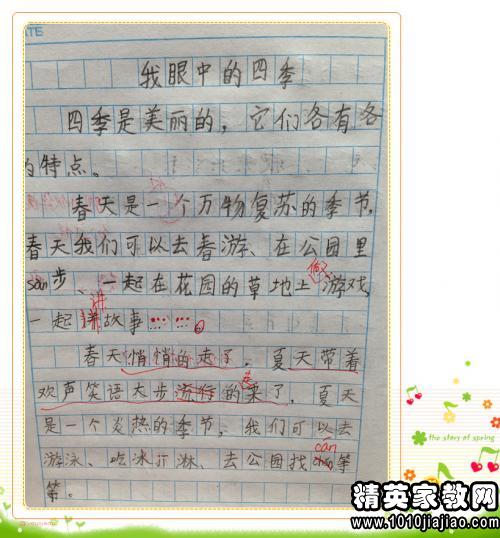 ATE
我眼中的四季
四季是美丽的，它们各有各
的特点。
春天是一个万物复苏的季节，
春天我们可以去春游、在公园里
san步、一起在花园的草地上做游戏
讲
一起讲故事……。
春天悄悄的走了，夏天带着
欢声笑语大步流行的来了，夏天
是一个炎热的季节，我们可以去
can
游泳、吃冰开淋、去公园找chan等
等。
the story of spring
精英家教网
www.1010jiajiao.com